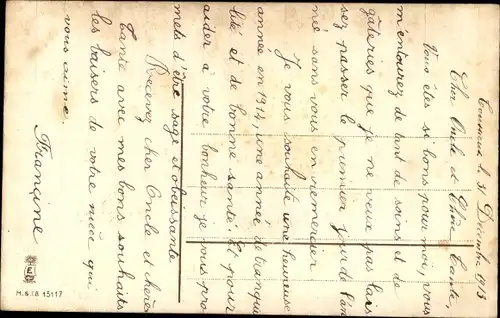 le 31 Décembre 1913
Cher Oncle et Chère Tante,
Vous êtes si bons pour moi, vous
m'entourez de tant de soins et de
gâteries que je ne veux pas lais
sez passer le premier jour de l'an
né sans vous en remercier
Je vous souhaite une heureuse
année en 1914, une année de tranqui
lité et de bonne santé. Et pour
aider à votre bonheur je vous pro
mets d'être sage et obéissante
Recevez cher Oncle et chère
Tante avec mes bons souhaits
les baisers de votre nièce qui
vous aime.
Francine
M.&.I.B 15117